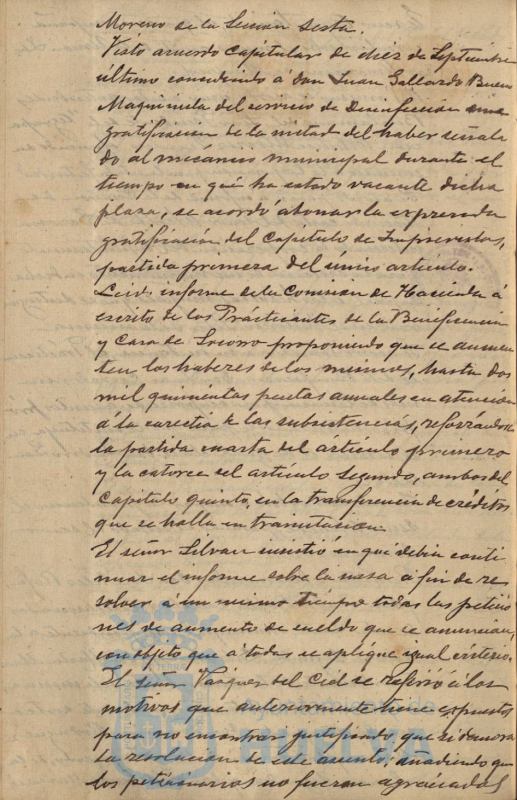 Moreno de la Sección Sexta.
Visto acuerdo capitular de diez de Septiembre
último concediendo á Don Juan Gallardo Bueno
Maquinista del servicio de Desinfección una
gratificación de la mitad del haber señala
do al mecánico municipal durante el
tiempo en que ha estado vacante dicha
plaza, se acordó abonar la expresada
gratificación del Capítulo de Imprevistos,
partida primera del único artículo.
Leido informe de la Comisión de Hacienda á
escrito de los Practicantes de la Beneficencia
y Casa de Socorro proponiendo que se aumen
ten los haberes de los mismos, hasta dos
mil quinientas pesetas anuales en atención
á la carestía de las subsistencias, reforzándose
la partida cuarta del artículo primero
y la catorce del artículo segundo, ambos del
Capítulo quinto, en la transferencia de créditos
que se halla en tramitación.
El señor Silvan insistió en que debía conti
nuar el informe sobre la mesa á fin de re
solver á un mismo tiempo todas las peticio
nes de aumento de sueldo que se anuncian,
con objeto que á todas se aplique igual criterio.
El señor Vázquez del Cid se refirió á los
motivos que anteriormente tiene expuestos
para no encontrar justificado que se demore
la resolución de este asunto; añadiendo que
los peticionarios no fueron agraciados
HUELVA